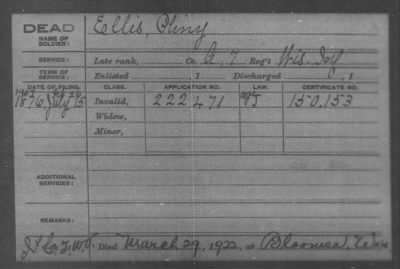 DEAD
NAME OF SOLDIER:
Ellis, Pliny
SERVICE:
Late rank, Co. A, 7 Reg't Wis. Inf
TERM OF SERVICE:
Enlisted 1 Discharged , 1
DATE OF FILING. CLASS. APPLICATION NO. LAW. CERTIFICATE NO.
1876, July 15 Invalid, 222471 150,153
Widow,
Minor,
ADDITIONAL SERVICES:
REMARKS:
Died March 29, 1922, at Bloomer, Wis